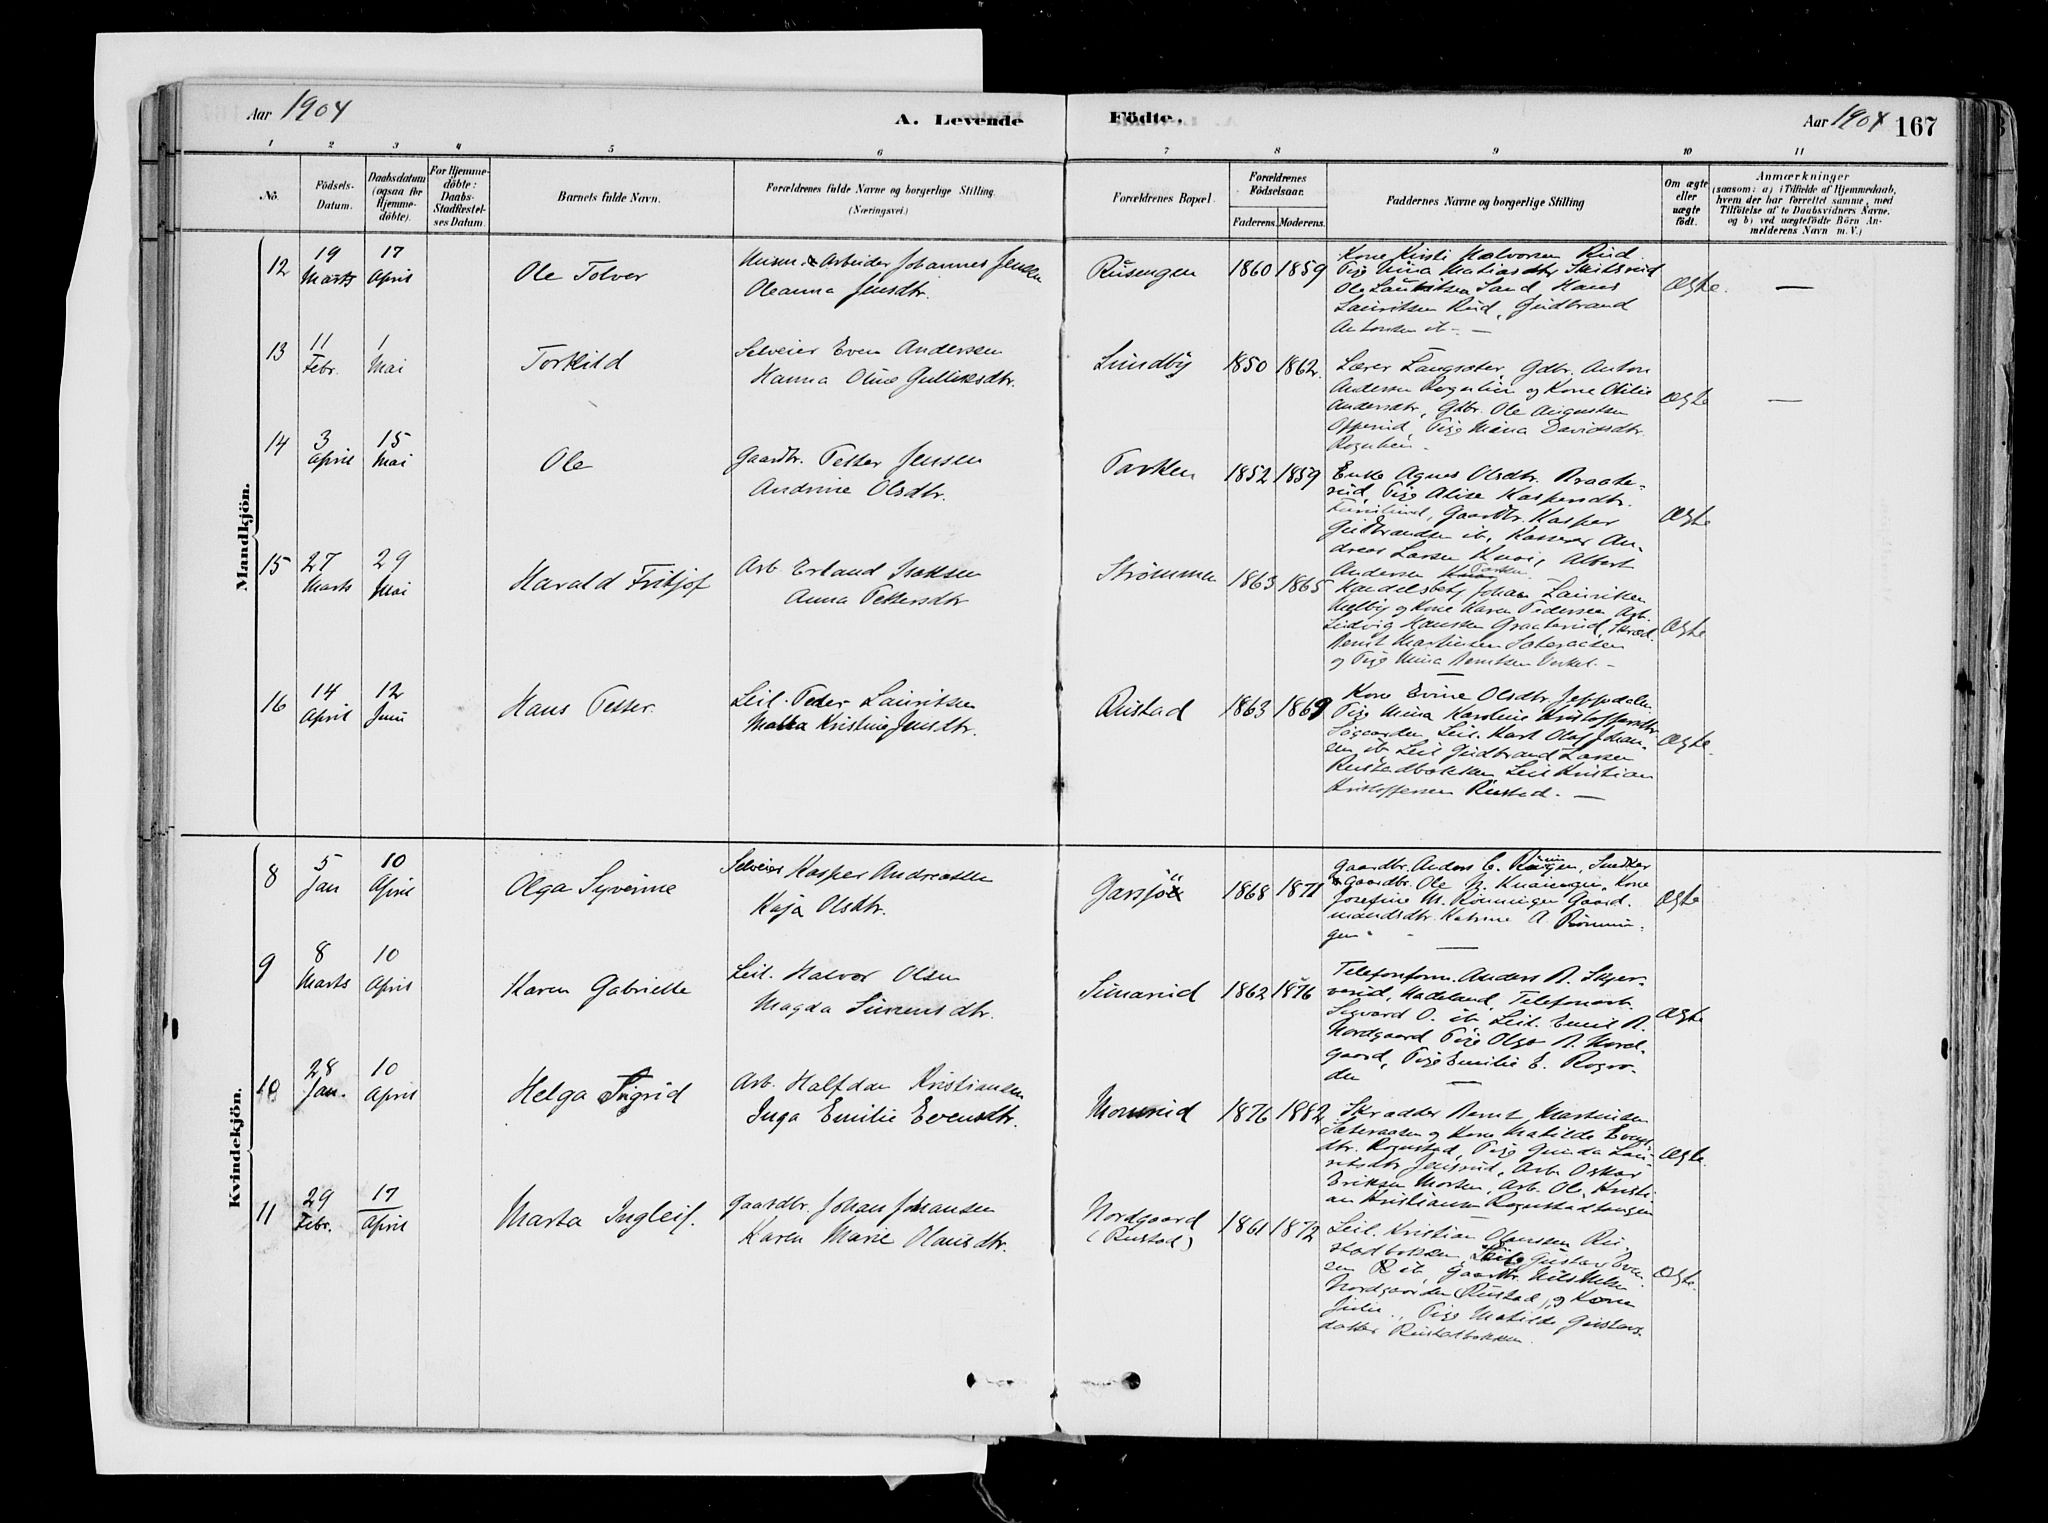 Aar 1904
A. Levende
Födte.
Aar 1904
167
1 2 3 4 5 6 7 8 9 10 11
No.
Födsels-
Datum.
Daabsdatum
(ogsaa for
Hjemme-
döbte).
For Hjemme-
döbte:
Daabs-
Stadfæstel-
ses Datum.
Barnets fulde Navn.
Forældrenes fulde Navne og borgerlige Stilling.
(Næringsvei.)
Forældrenes Bopæl.
Forældrenes
Födselsaar.
Faderens. Moderens.
Faddernes Navne og borgerlige Stilling
Om ægte
eller
uægte
födt.
Anmærkninger
(saasom: a) i Tilfælde af Hjemmedaab,
hvem der har forrettet samme, med
Tilföielse af to Daabsvidners Navne,
og b) ved uægtefödte Börn An-
melderens Navn m. V.)
Mandkjön.
12
19 Marts
17 April
Ole Tolver
Arbeider Johannes Jensen
Oleanna Jensdtr.
Rusengen
1860 1859
Kone Kirsti Halvorsen Rud
Pige Mina Matiasdtr
Ole Lauritsen Sand Hans
Lauritsen Rud, Gudbrand
Antonsen ib. —
Ægte.
—
13
11 Febr.
1 Mai
Torkild
Selveier Even Andersen
Hanna Oline Gulliksdtr.
Lundby
1850 1862.
Lærer Langsæter, Gdbr. Anton
Andersen Rognlien og Kone Otilie
Andersdtr, Gdbr. Ole Augustsen
Opperud, Pige Mina Davidsdtr.
Rognlien.
Ægte
—
14
3 April
15 Mai
Ole
Gaardbr. Petter Jensen
Andrine Olsdtr.
Parken
1852 1859
Enke Agnes Olsdtr. Braate-
rud, Pige Alise Kaspersdtr.
Gaardbr. Kasper
Gudbrandsen ib, Kasserer An-
dreas Larsen Knai, Albert
Andersen Parken
Ægte
15
27 Marts
29 Mai
Harald Fritjof
Arb. Erland Isaksen
Anna Pettersdtr
Strømmen
1863 1865
Handelsbetj Johan Lauritsen
Melby og Kone Karen Pedersen Arb.
Ludvig Hansen Graaterud, Skræd.
Bernt Martinsen Sæteraasen
og Pige Mina Berntsen —
Ægte.
16
14 April
12 Juni
Hans Petter
Leil. Peder Lauritsen
Matea Kristine Jensdtr.
Rustad
1863 1869
Kone Evine Olsdtr Jeppedalen
Pige Mina Karoline Kristoffersdtr.
Søgaarden Leil. Karl Olaf Johan-
sen ib Leil Gudbrand Larsen
Rustadbakken Leil Kristian
Kristoffersen Rustad. —
Ægte.
Kvindekjön.
8
5 Jan
10 April
Olga Syverine
Selveier Kasper Andreassen
Kaja Olsdtr.
Garsjö
1868 1871
Gaardbr. Anders C. Snedker
& Gaardbr. Ole Kone
Josefine M. Rönningen Gaard-
mandsdtr. Katrine A. Rönnin-
gen. —
Ægte
9
8 Marts
10 April
Karen Gabrielle
Leil. Halvor Olsen
Magda Simensdtr.
Simarud
1862 1876
Telefonform. Anders A.
Hadeland, Telefonarb.
Sigvard O. ib Leil. Emil A.
Nordgaard Pige Olga A. Nord-
gaard, Pige Emilie E. Rogno-
den —
Ægte
10
28 Jan.
10 April
Helga Sigrid
Arb. Halfdan Kristiansen
Inga Emilie Evensdtr.
Monsrud
1876 1882
Skrædder Bernt Martinsen
Sæteraasen og Kone Matilde Evens-
dtr. Rognstad, Pige Gunda Lau-
ritsdtr Jensrud, Arb. Oskar
Eriksen Morken, Arb. Ole Kristi-
an Kristiansen Rognstadtangen
Ægte.
11
29 Febr.
17 April
Marta Ingleif.
Gaardbr. Johan Johansen
Karen Marie Olausdtr.
Nordgaard
(Rustad)
1861 1872
Leil. Kristian Olaussen Ru-
stadbakken, Leil. Gustav Even-
sen ib, Gaardbr. Nils Nilsen
Nordgaarden (Rustad), og Kone
Julie., Pige Matilde Gustavs-
datter Rustadbakken.
Ægte.